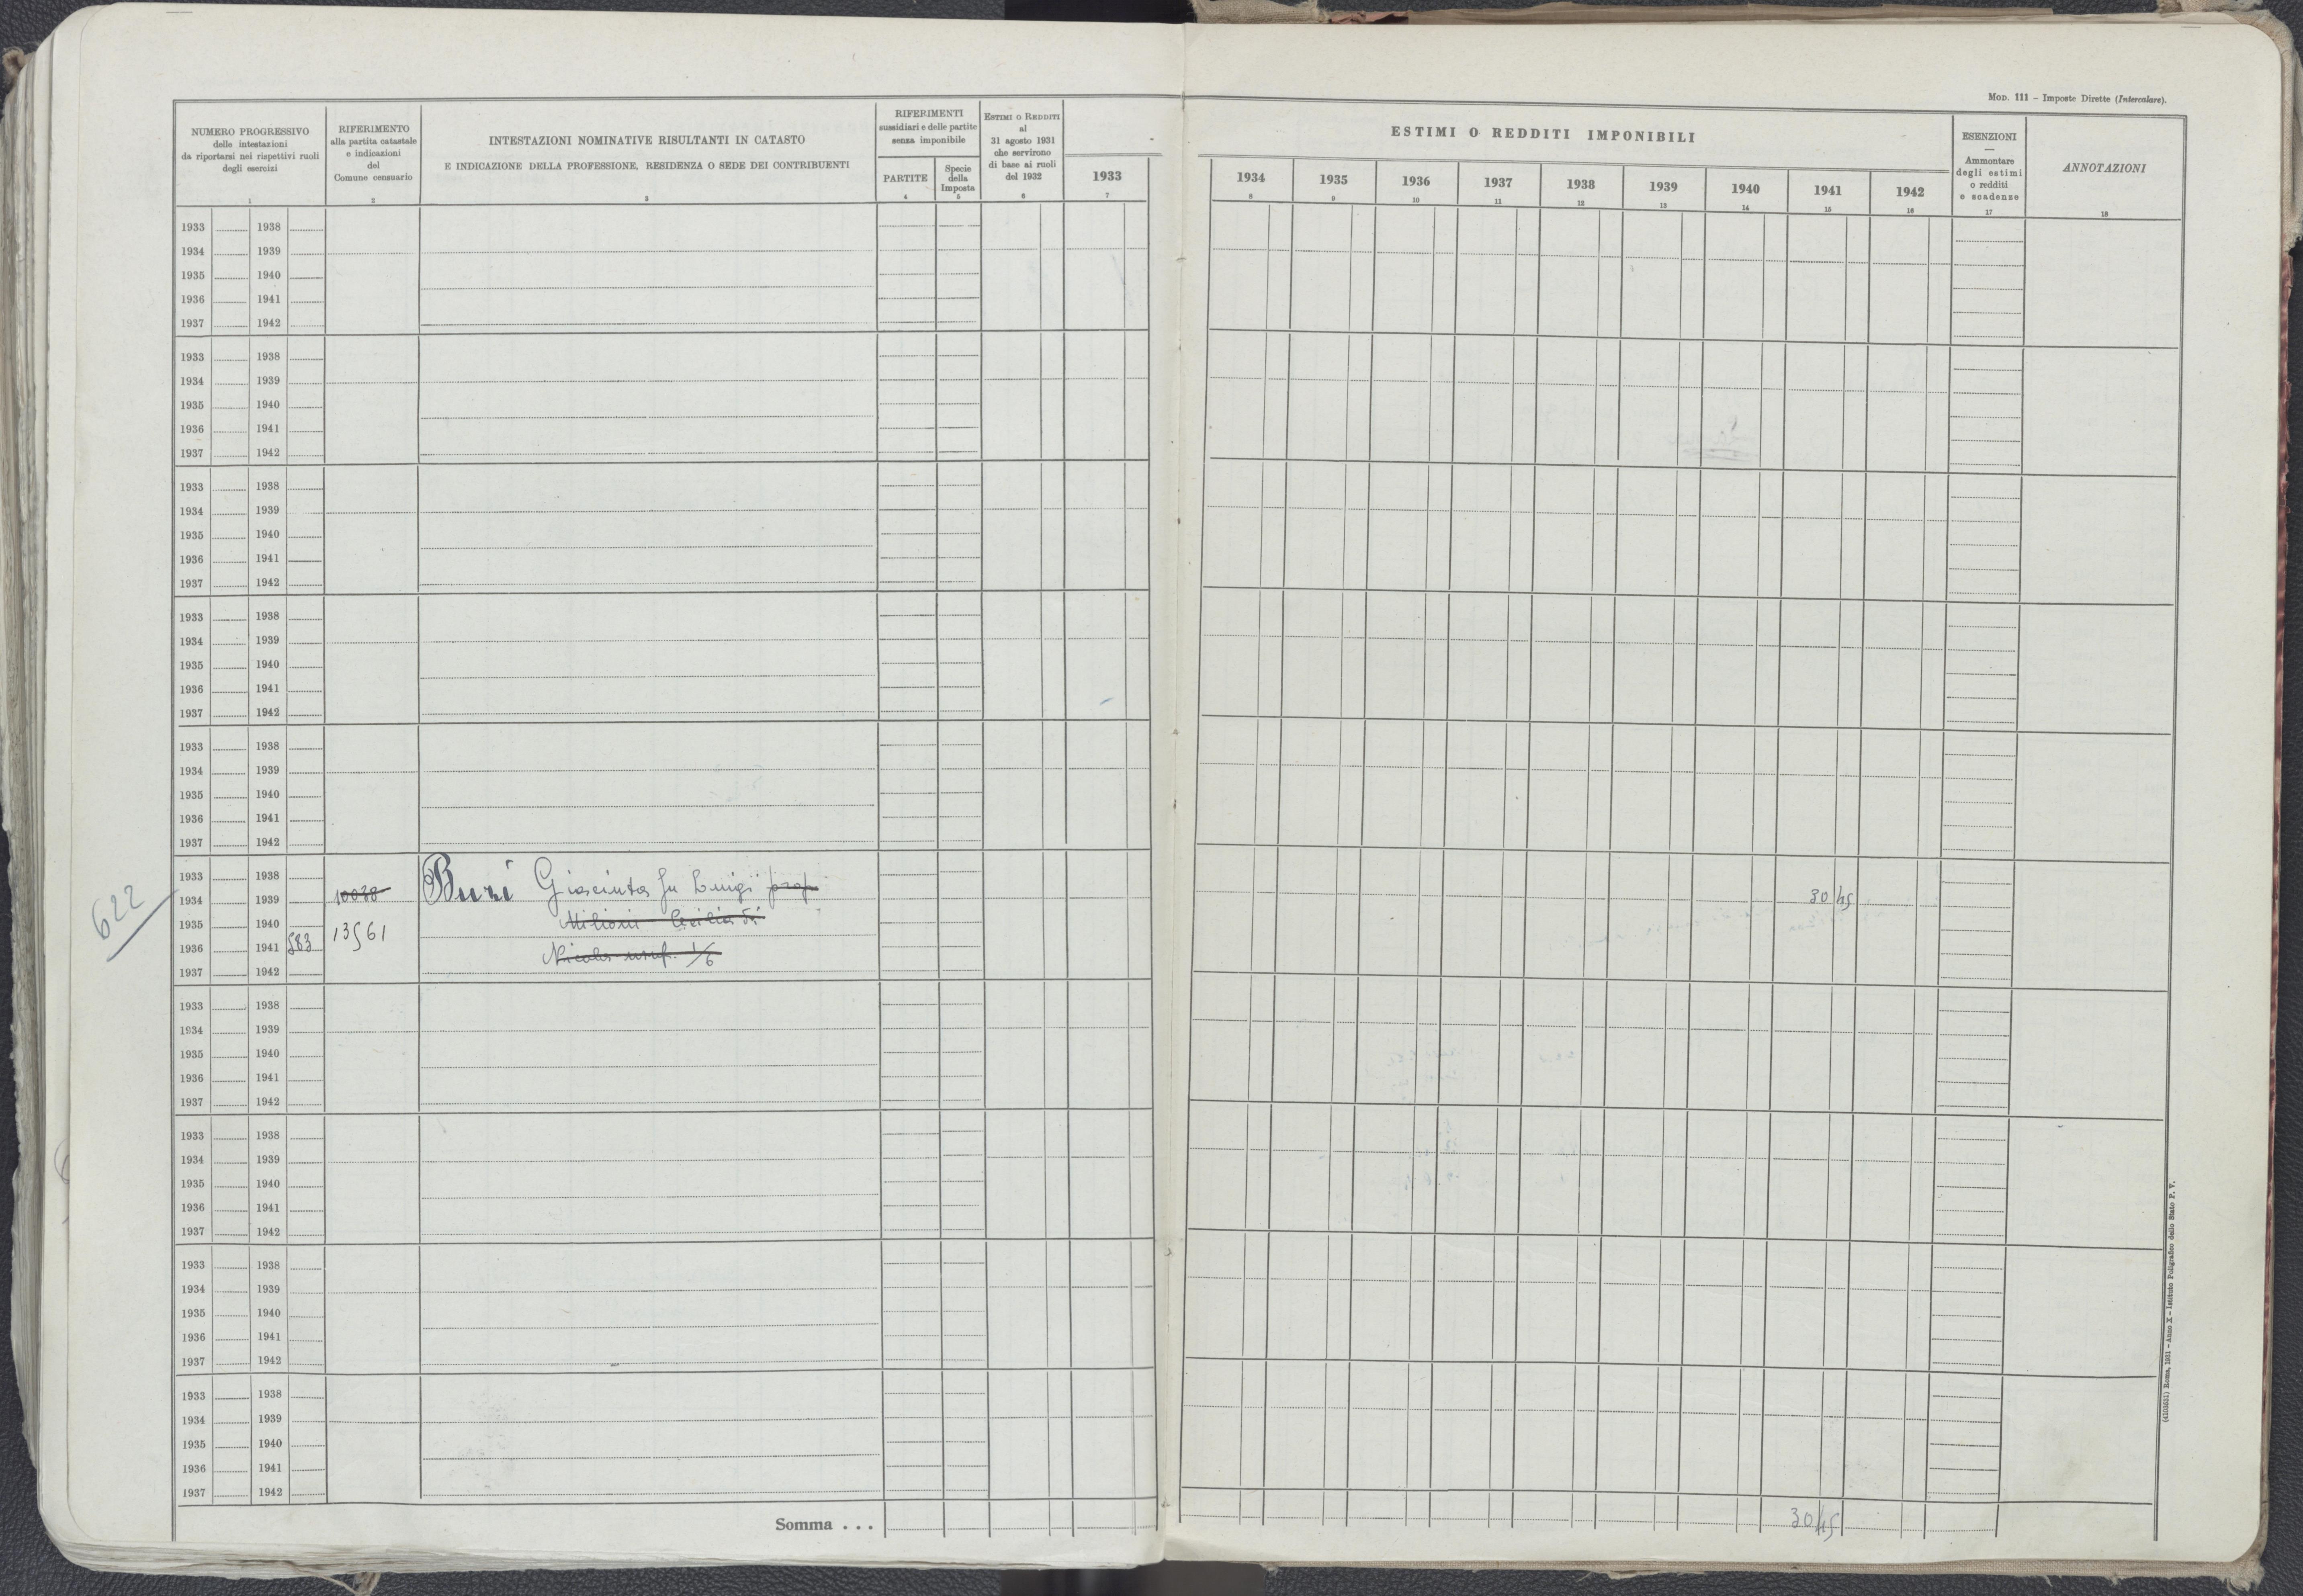 MOD. 111 – Imposte Dirette (Intercalare).
NUMERO PROGRESSIVO
delle intestazioni
da riportarsi nei rispettivi ruoli
degli esercizi
1
RIFERIMENTO
alla partita catastale
e indicazioni
del
Comune censuario
2
INTESTAZIONI NOMINATIVE RISULTANTI IN CATASTO
E INDICAZIONE DELLA PROFESSIONE, RESIDENZA O SEDE DEI CONTRIBUENTI
3
RIFERIMENTI
sussidiari e delle partite
senza imponibile
PARTITE
4
Specie
della
Imposta
5
ESTIMI O REDDITI
al
31 agosto 1931
che servirono
di base ai ruoli
del 1932
6
1933
7
ESTIMI O REDDITI IMPONIBILI
1934 1935 1936 1937 1938 1939 1940 1941 1942
8 9 10 11 12 13 14 15 16
ESENZIONI
—
Ammontare
degli estimi
o redditi
e scadenze
17
ANNOTAZIONI
18
1933 1938
1934 1939
1935 1940
1936 1941
1937 1942
1933 1938
1934 1939
1935 1940
1936 1941
1937 1942
1933 1938
1934 1939
1935 1940
1936 1941
1937 1942
1933 1938
1934 1939
1935 1940
1936 1941
1937 1942
1933 1938
1934 1939
1935 1940
1936 1941
1937 1942
622
1933 1938 Buzi Giacinta fu Luigi prop
1934 1939 10038 30 45
1935 1940 Milioni Cecilia di
1936 1941 583 13561
1937 1942 Nicola usuf. 1/6
1933 1938
1934 1939
1935 1940
1936 1941
1937 1942
1933 1938
1934 1939
1935 1940
1936 1941
1937 1942
1933 1938
1934 1939
1935 1940
1936 1941
1937 1942
1933 1938
1934 1939
1935 1940
1936 1941
1937 1942
Somma . . . 30 45
(4103521) Roma, 1931 – Anno X – Istituto Poligrafico dello Stato P. V.